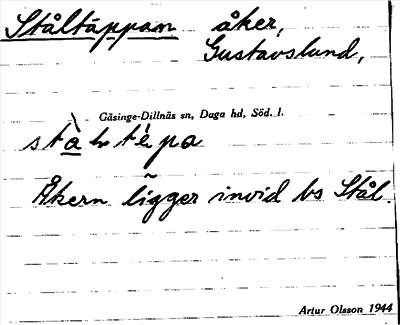 Ståltäppan åker,
Gustavslund,
Gåsinge-Dillnäs sn, Daga hd, Söd. l.
Åkern ligger invid bs Stål
Artur Olsson 1944